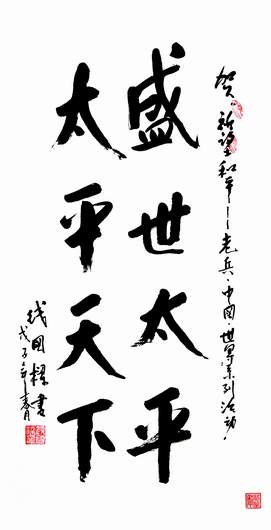 贺“祈望和平——老兵·中国·世界系列活动”
盛世太平
太平天下
钱国梁书
戊子年春月